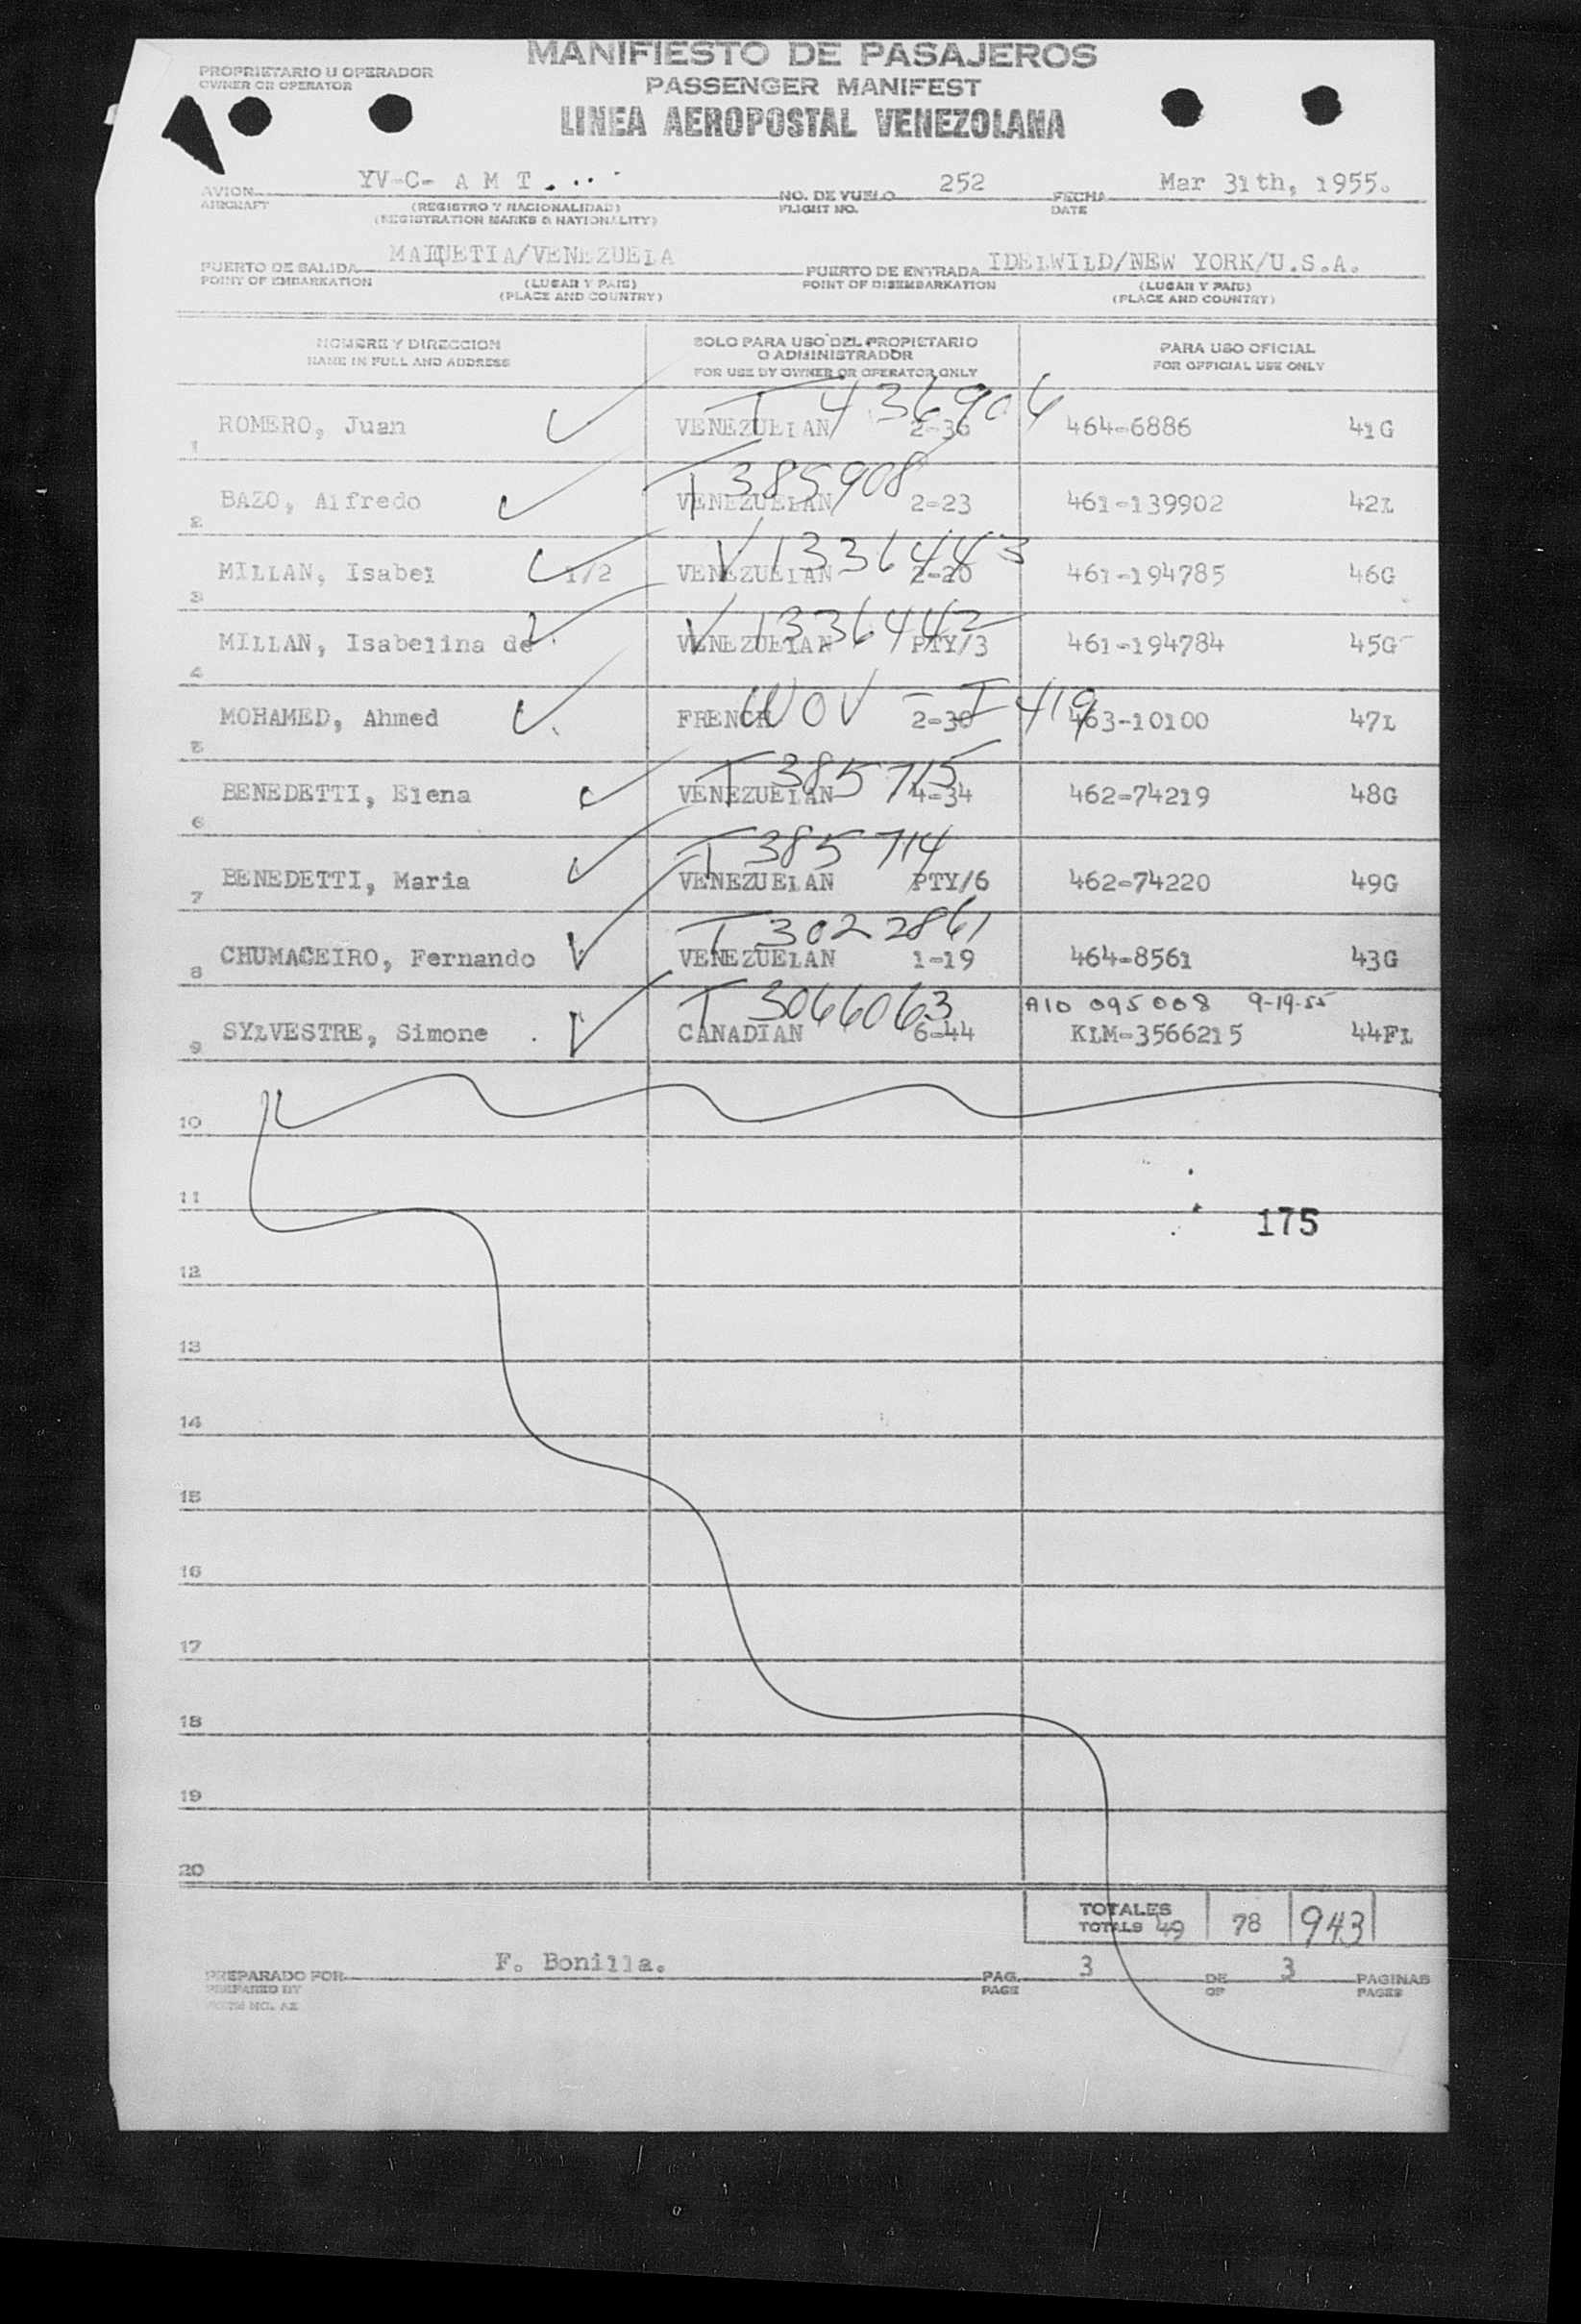 MANIFIESTO DE PASAJEROS
PROPRIETARIO U OPERADOR
OWNER OR OPERATOR
PASSENGER MANIFEST
LINEA AEROPOSTAL VENEZOLANA
AVION YV-C- A M T . . . . NO. DE VUELO 252 FECHA Mar 31th, 1955.
AIRCRAFT (REGISTRO Y NACIONALIDAD) FLIGHT NO. DATE
(REGISTRATION MARKS & NATIONALITY)
PUERTO DE SALIDA MAIQUETIA/VENEZUELA PUERTO DE ENTRADA IDELWILD/NEW YORK/U.S.A.
POINT OF EMBARKATION (LUGAR Y PAIS) POINT OF DISEMBARKATION (LUGAR Y PAIS)
(PLACE AND COUNTRY) (PLACE AND COUNTRY)
NOMBRE Y DIRECCION SOLO PARA USO DEL PROPIETARIO PARA USO OFICIAL
NAME IN FULL AND ADDRESS O ADMINISTRADOR FOR OFFICIAL USE ONLY
FOR USE BY OWNER OR OPERATOR ONLY
T 436904
1 ROMERO, Juan VENEZUELAN 2-36 464-6886 41G
T 385908
2 BAZO, Alfredo VENEZUELAN 2-23 461-139902 42L
V 1336443
3 MILLAN, Isabel 1/2 VENEZUELAN 2-20 461-194785 46G
V 1336442
4 MILLAN, Isabelina de VENEZUELAN PTY/3 461-194784 45G
WOV - I 419
5 MOHAMED, Ahmed FRENCH 2-30 463-10100 47L
T 385715
6 BENEDETTI, Elena VENEZUELAN 4-34 462-74219 48G
T 385714
7 BENEDETTI, Maria VENEZUELAN PTY/6 462-74220 49G
T 3022861
8 CHUMACEIRO, Fernando VENEZUELAN 1-19 464-8561 43G
T 3066063 A10 095008 9-19-55
9 SYLVESTRE, Simone . CANADIAN 6-44 KLM-3566215 44FL
10
11
175
12
13
14
15
16
17
18
19
20
TOTALES
TOTALS 49 78 943
PREPARADO POR F. Bonilla. PAG. 3 DE 3 PAGINAS
PREPARED BY PAGE OF PAGES
FORM NO. A2